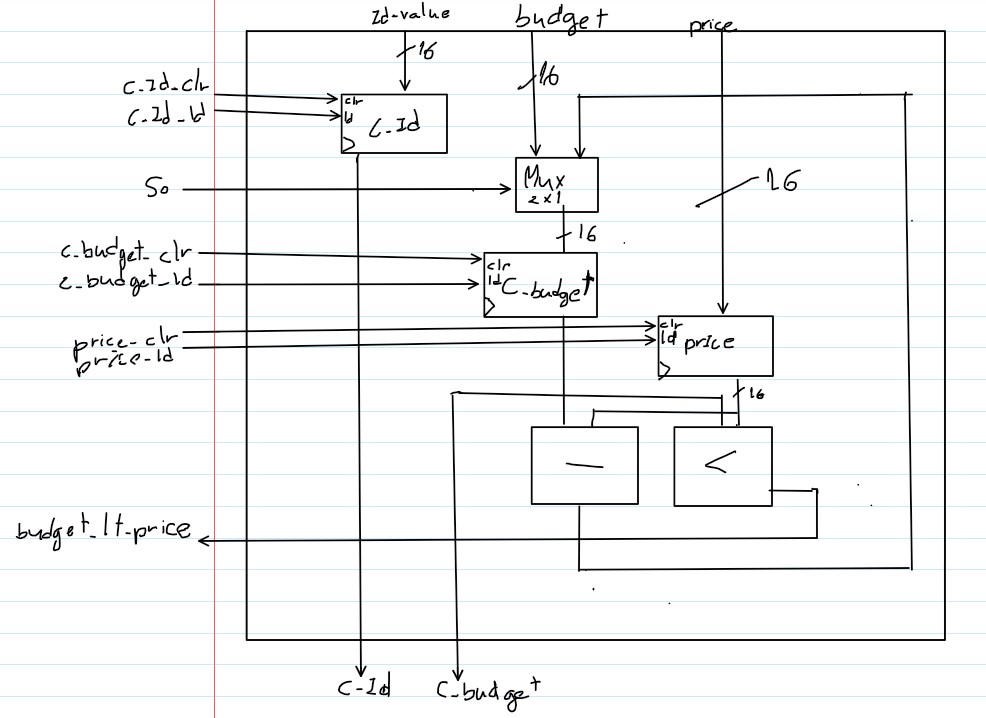 Id-value
budget
price
16
16
16
C_Id_clr
C_Id_ld
clr
ld
C_Id
S0
Mux
2x1
16
c_budget_clr
c_budget_ld
clr
ld
C_budget
price_clr
price_ld
clr
ld
price
16
—
<
budget_lt_price
C-Id
C_budget